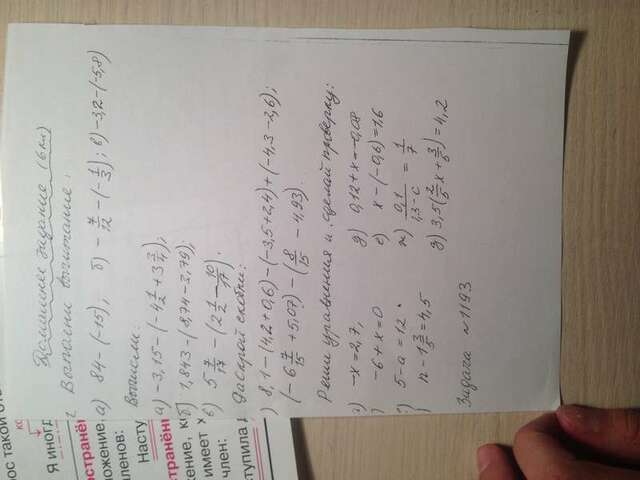 Домашнее задание (6 кл)
Выполни вычитание:
а) 84-(-15); б) -7/12-(-1/3); в) -3,2-(-5,8)
Вычисли:
а) -3,15-(-4 1/2+3 3/4);
б) 1,843-(8,74-2,79);
в) 5 7/17-(2 1/2-10/17).
Раскрой скобки:
) 8,1-(4,2+0,6)-(-3,5+2,4)+(-4,3-2,6);
(-6 7/15+5,07)-(8/15-4,93).
Реши уравнения и сделай проверку:
-x=2,7, д) 0,12+x=-0,08
) -6+x=0 е) x-(-0,6)=1,6
) 5-a=12 0,1/1,3-c=1/7
) n-1 3/5=4,5 3,5(x+)=4,2
Задача №1193
ос такой
Я иногд
остранён
ложение,
аленов:
Насту
остранённ
жение, к
имеет х
член:
ступила